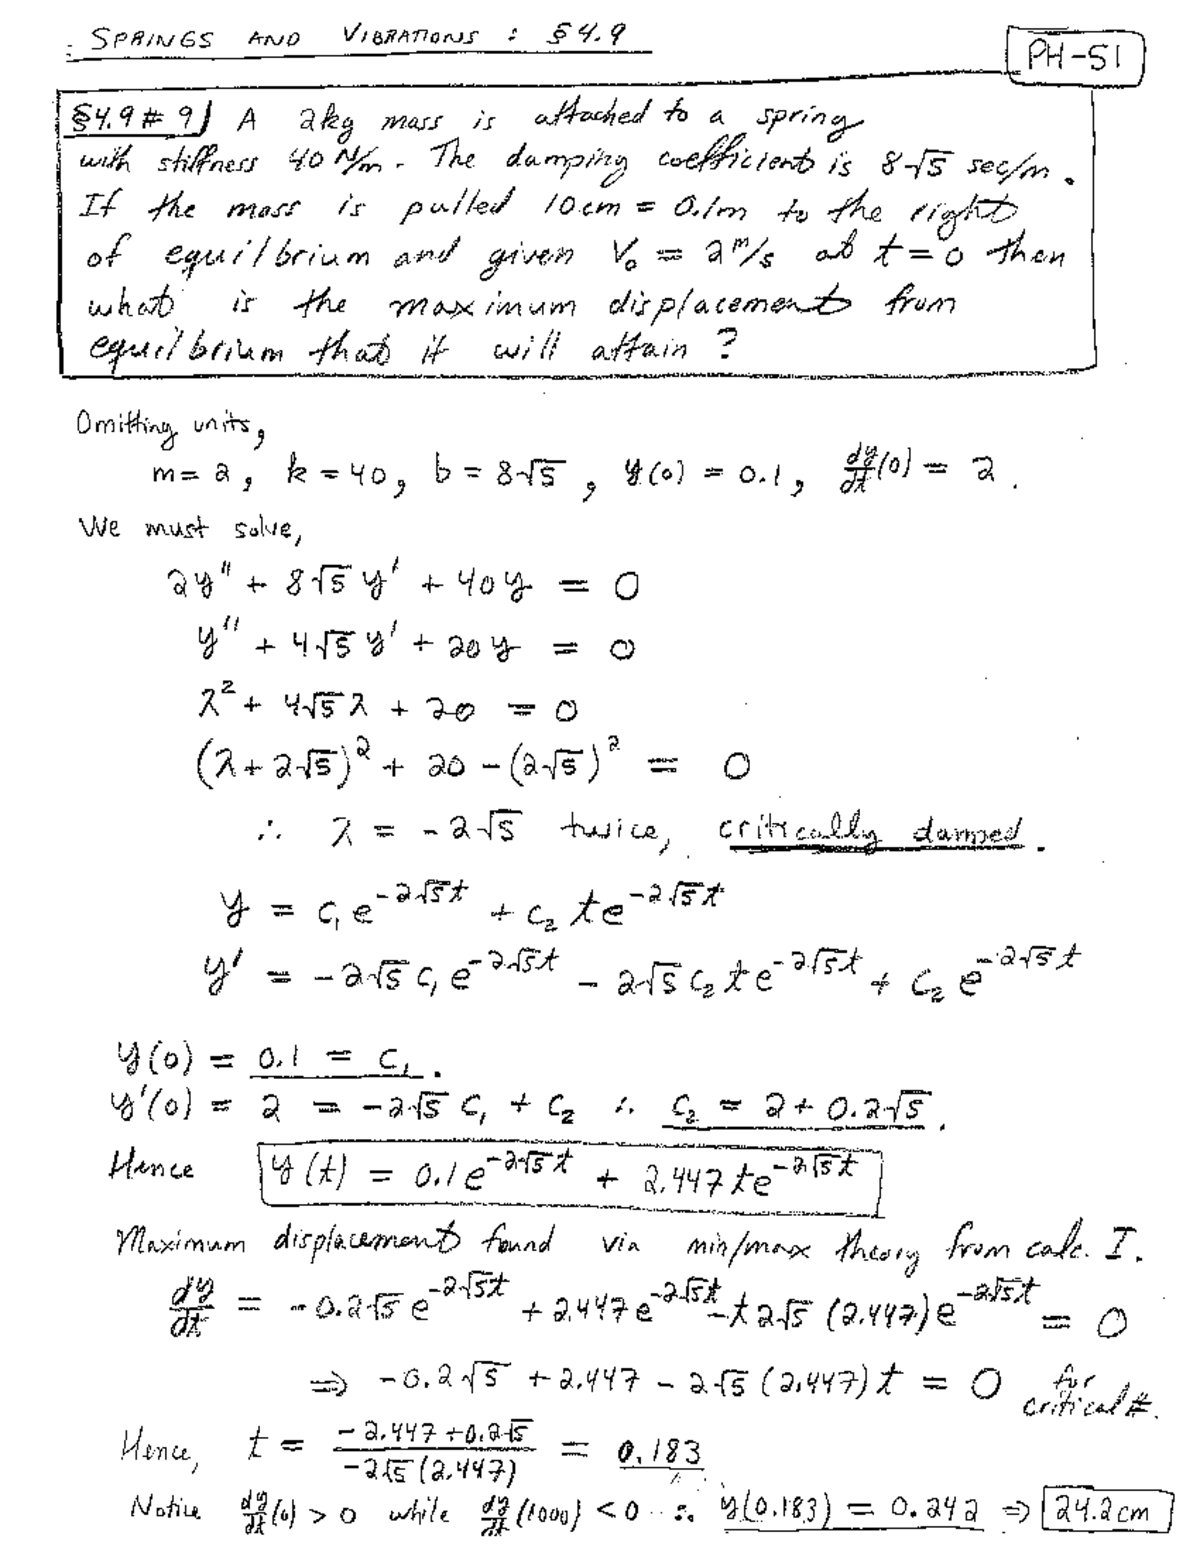 SPRINGS AND VIBRATIONS : §4.9
PH-51
§4.9 # 9) A 2kg mass is attached to a spring
with stiffness 40 N/m. The damping coefficient is 8√5 sec/m.
If the mass is pulled 10cm = 0.1m to the right
of equilbrium and given V₀ = 2 m/s at t=0 then
what is the maximum displacement from
equilbrium that it will attain ?
Omitting units,
m=2, k=40, b=8√5, y(0) = 0.1, dy/dt(0) = 2.
We must solve,
2y'' + 8√5 y' + 40y = 0
y'' + 4√5 y' + 20y = 0
λ² + 4√5 λ + 20 = 0
(λ + 2√5)² + 20 - (2√5)² = 0
∴ λ = -2√5 twice, critically damped.
y = c₁e^(-2√5t) + c₂ te^(-2√5t)
y' = -2√5 c₁e^(-2√5t) - 2√5 c₂te^(-2√5t) + c₂e^(-2√5t)
y(0) = 0.1 = c₁.
y'(0) = 2 = -2√5 c₁ + c₂ ∴ c₂ = 2 + 0.2√5.
Hence y(t) = 0.1e^(-2√5t) + 2.447te^(-2√5t)
Maximum displacement found via min/max theory from calc. I.
dy/dt = -0.2√5 e^(-2√5t) + 2.447e^(-2√5t) - t2√5 (2.447)e^(-2√5t) = 0
⇒ -0.2√5 + 2.447 - 2√5 (2.447)t = 0 for critical #.
Hence, t = (-2.447+0.2√5)/(-2√5(2.447)) = 0.183
Notice dy/dt(0) > 0 while dy/dt(1000) < 0 ∴ y(0.183) = 0.242 ⇒ 24.2cm